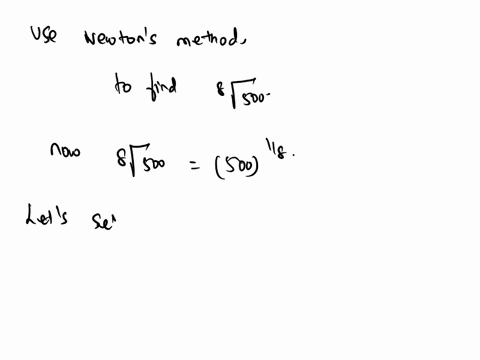 Use Newton's method,
to find ⁸√500.
now ⁸√500 = (500)^1/8.
Let's se